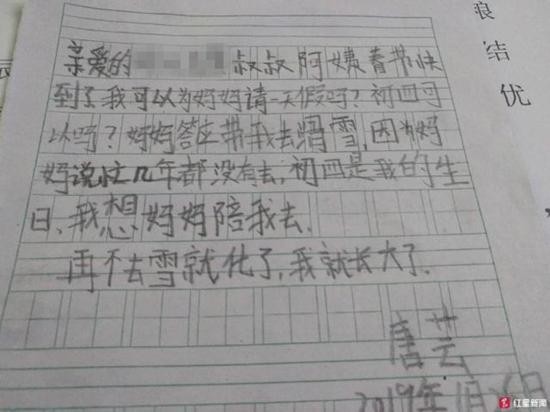 亲爱的 叔叔阿姨春节快
到了我可以为妈妈请一天假吗?初四可
以吗?妈妈答应带我去滑雪,因为妈
妈说忙几年都没有去,初四是我的生
日、我想妈妈陪我去.
再不去雪就化了,我就长大了.
唐芸
2019年1月 日
结优
红星新闻